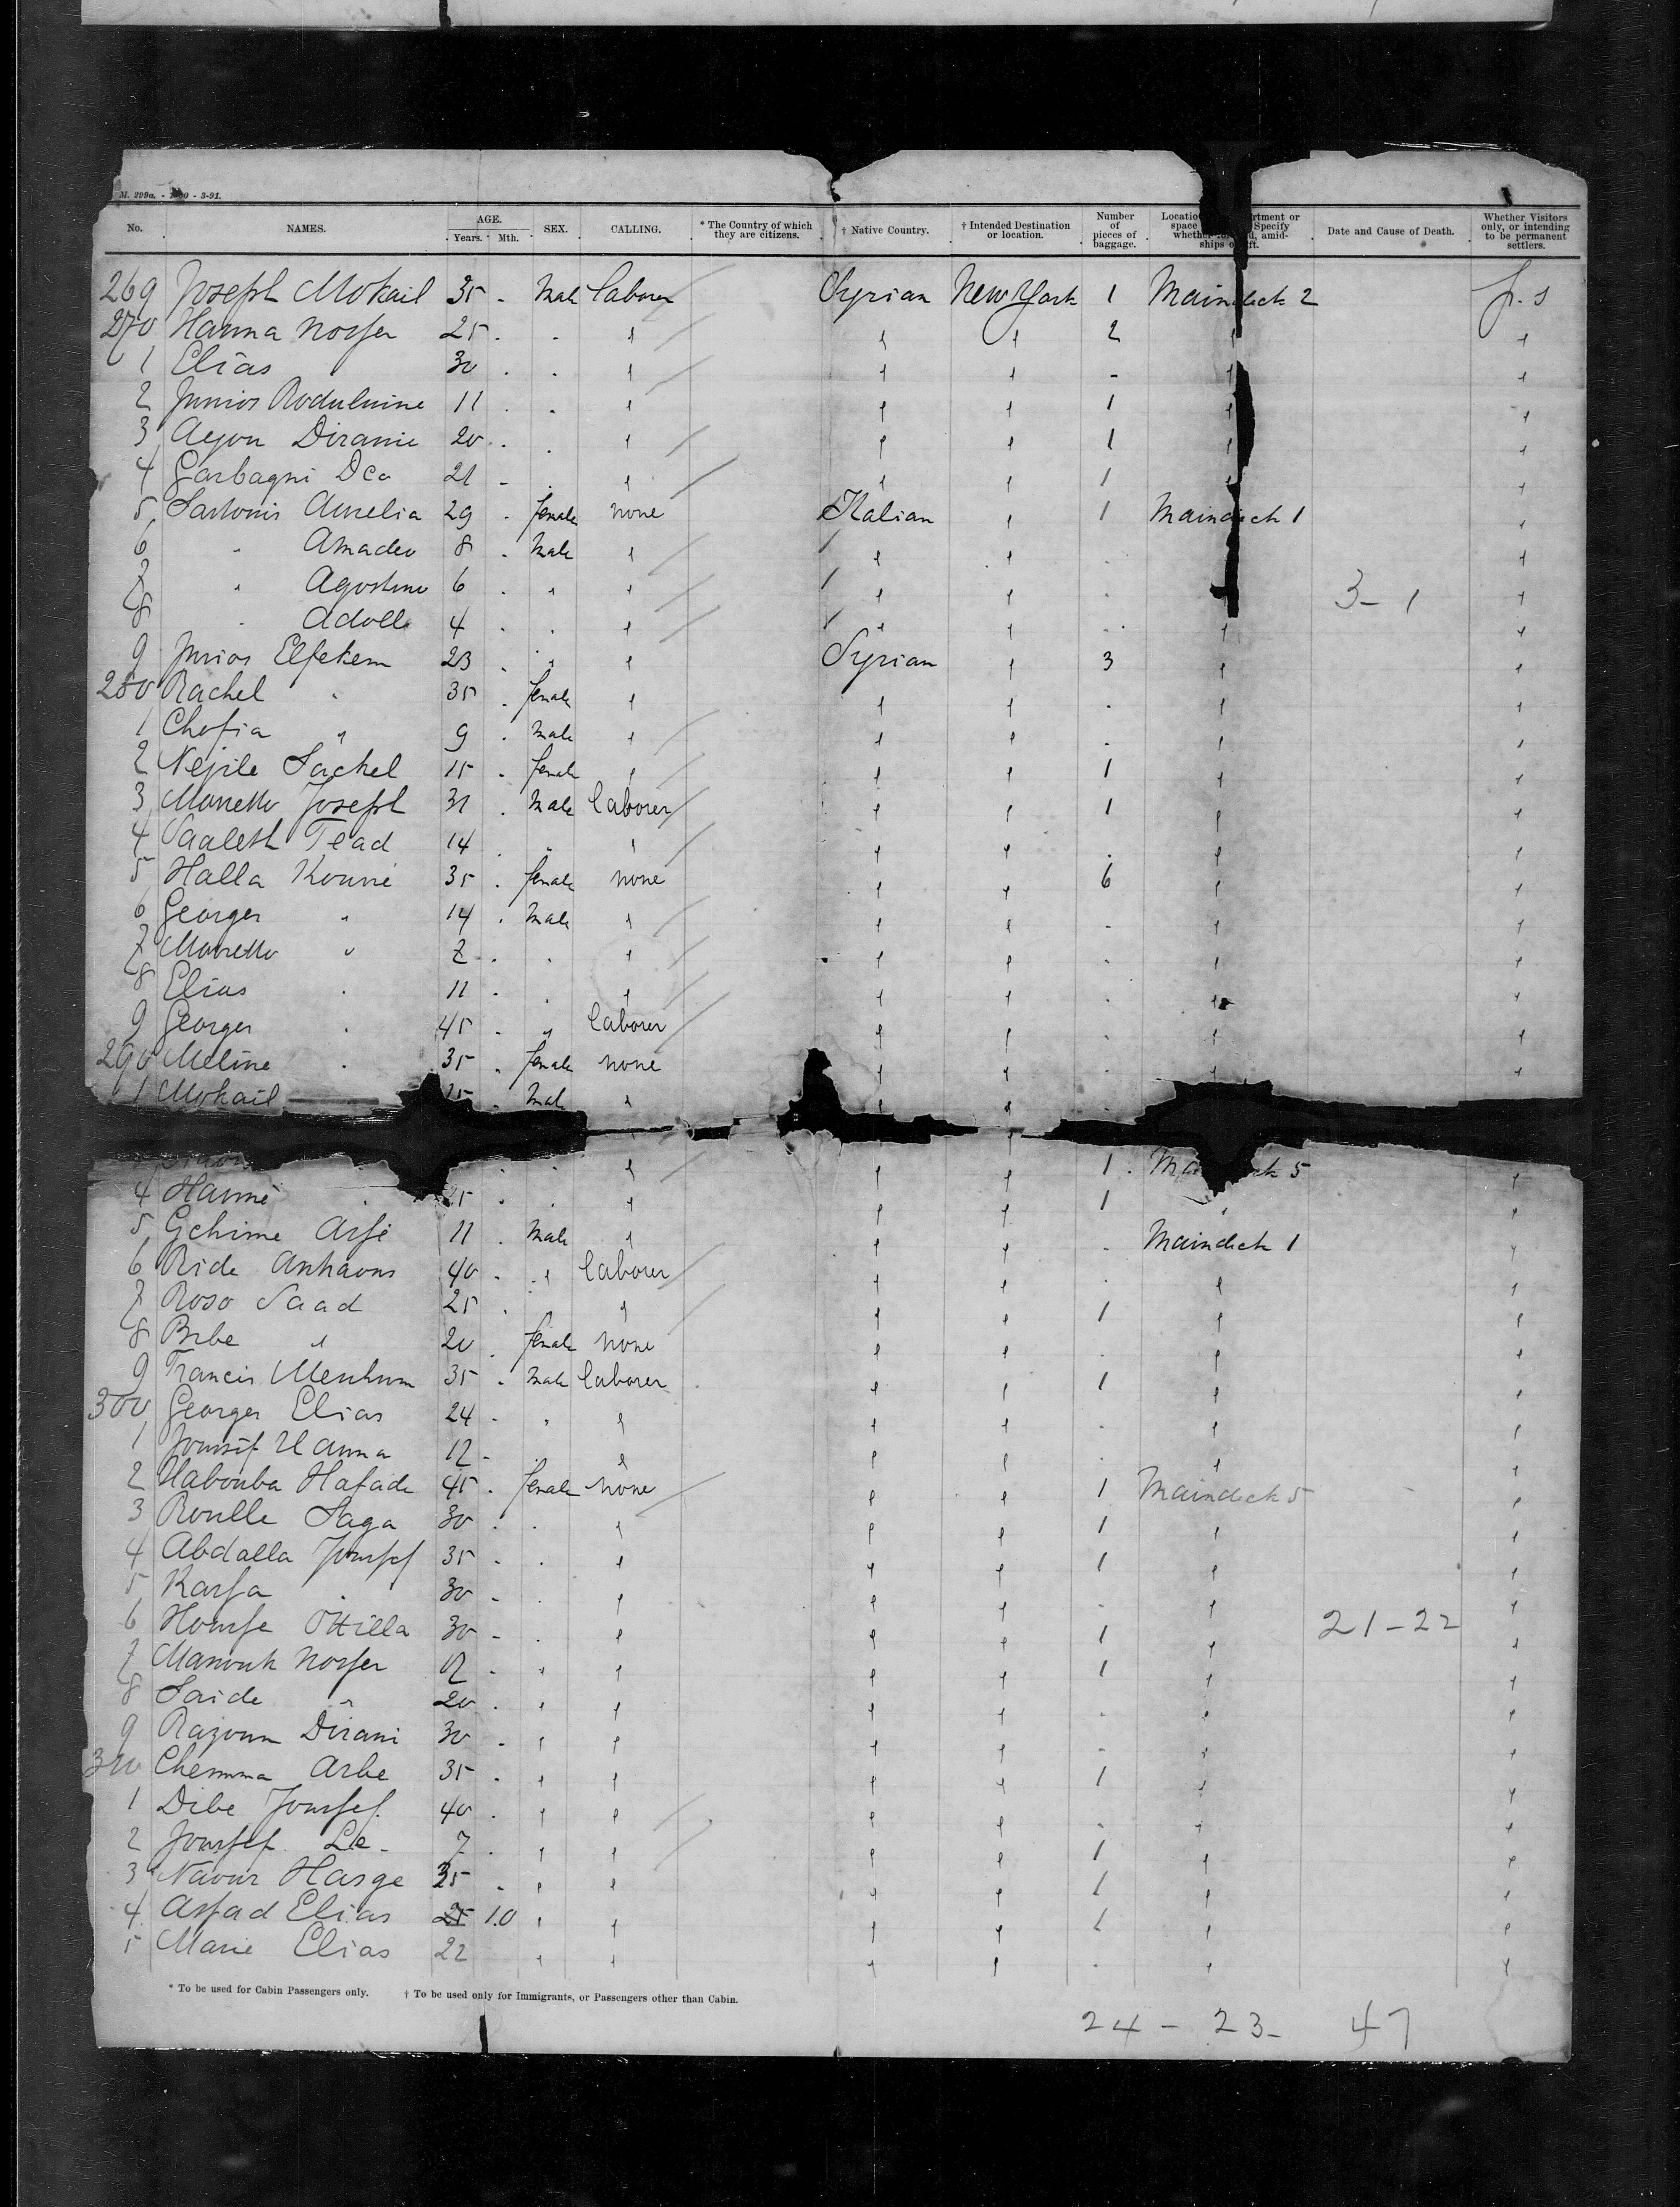 M. 299a. - - 3-91.
No. NAMES. AGE. Years. Mth. SEX. CALLING. * The Country of which they are citizens. † Native Country. † Intended Destination or location. Number of pieces of baggage. Date and Cause of Death. Whether Visitors only, or intending to be permanent settlers.
269 Joseph Mokail 35 - Male laborer Syrian New York 1 Maindeck 2
270 Hanna Nosser 25 . . " " " 2 " "
1 Elias 30 . . " " " - " "
2 Junios 11 . . " " " 1 " "
3 Diranie 20 . . " " " 1 " "
4 Garbagni 21 - . " " " 1 " "
5 Aurelia 29 . female none Italian " 1 Maindeck 1 "
6 " Amadeo 8 . Male " " " . "
7 " Agostino 6 . " " " " . 3 - 1 "
8 " 4 . . " " " . " "
9 Junios Elfekem 23 . " " Syrian " 3 " "
280 Rachel " 35 . female " " " . " "
1 Chofia " 9 . Male " " " . " "
2 Nejile Sachel 15 . female " " " 1 " "
3 Joseph 31 . Male laborer " " 1 " "
4 Saaleth Tead 14 . " " " " . " "
5 Halla Kourie 35 . female none " " 6 " "
6 Georges " 14 . Male " " " - " "
7 " 7 . . " " " . " "
8 Elias . 11 . . " " " . " "
9 Georges . 45 - " laborer " " . " "
290 Meline . 35 . female none " " . " "
1 Mokail Male " " " .
. . " " " 1 . "
4 Hanne . 25 . . " " " 1 " "
5 Gchime Arfi 11 . Male " " " . Maindeck 1 "
6 Ride 40 . " laborer " " . " "
7 Roso Saad 25 . " " " " 1 " "
8 Brbe " 20 . female none " " . " "
9 Francis 35 . Male laborer " " 1 " "
300 Georges Elias 24 - " " " " . " "
1 Jousif Hanna 12 - . " " " . " "
2 Habouba Hafade 45 . female none " " 1 Maindeck 5 "
3 Roulle Saga 30 . . " " " 1 " "
4 Abdalla Joussef 35 . . " " " 1 " "
5 Karfa . 30 - . " " " . " "
6 Ottilla 30 - . " " " 1 " 21 - 22 "
7 Manouk Nosser 12 - " " " " 1 " "
8 Saide " 20 . " " " " . " "
9 Razoum Dirani 30 . " " " " - " "
310 Chemma Arbe 35 . " " " " 1 " "
1 Dibe Joussef 40 . " " " " . " "
2 Joussef Le 7 . " " " " 1 " "
3 Naour Hasge 35 . " " " " 1 " "
4 Assad Elias 10 " " " " 1 " "
5 Marie Elias 22 " " " " . " "
* To be used for Cabin Passengers only. † To be used only for Immigrants, or Passengers other than Cabin.
24 - 23 - 47